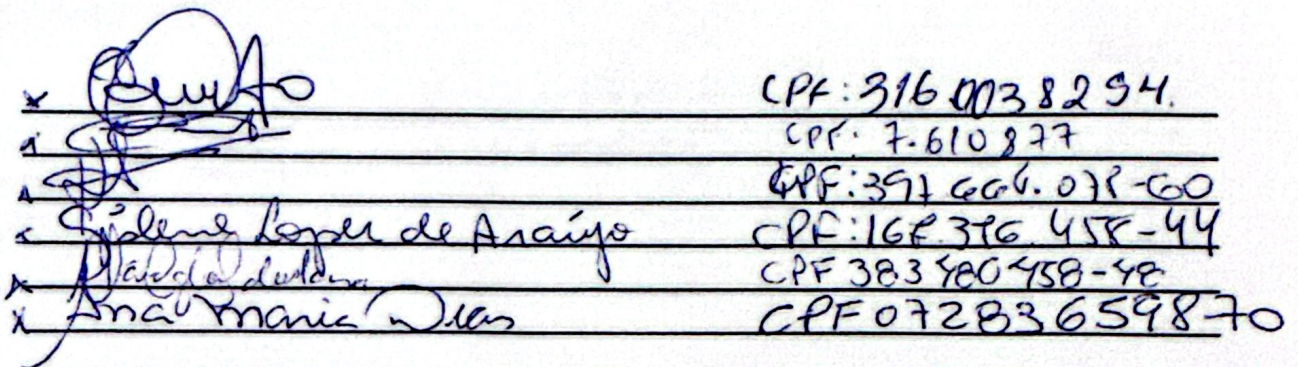 x CPF: 316.003 8294.
x CPF: 7.610877
x CPF: 397 666. 078-60
x Gislene Lopes de Araújo CPF: 168.396.458-44
x CPF 383480458-48
x Ana Maria Dias CPF 07283659870